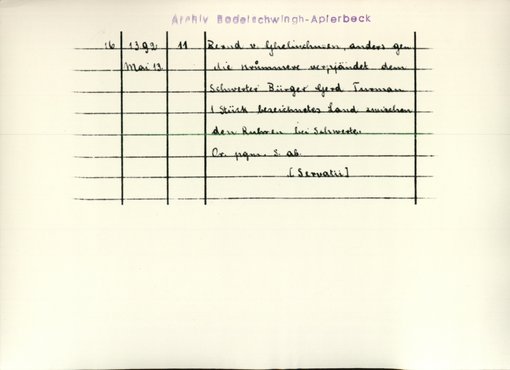 Archiv Bodelschwingh-Aplerbeck
16 1392 11 Bernd v. Ghelinchusen, anders gen.
Mai 13 die Krümmere verpfändet dem
Schwerter Bürger Gerd Turman
1 Stück bezeichnetes Land zwischen
den Ruhren bei Schwerte.
Or. pgm. S. ab.
[Servatii]